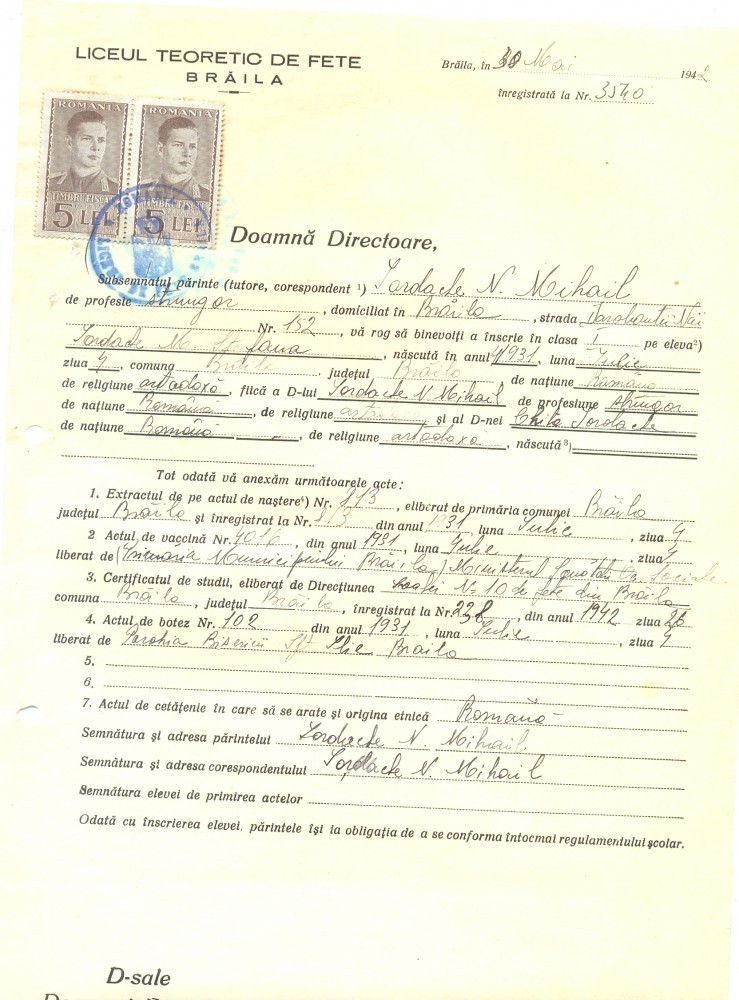 LICEUL TEORETIC DE FETE
BRĂILA
Brăila, în 30 Mai 1942
înregistrată la Nr. 3540
ROMANIA ROMANIA
TIMBRU FISCAL TIMBRU FISCAL
5 LEI 5 LEI
Doamnă Directoare,
Subsemnatul părinte (tutore, corespondent ¹) Iordache N. Mihail
de profesie strungar, domiciliat în Brăila, strada
Nr. 152, vă rog să binevoiți a înscrie în clasa I pe eleva²)
Iordache M. născută în anul 1931, luna Iulie
ziua 4, comuna Brăila județul Brăila de națiune Română
de religiune ortodoxă, fiică a D-lui Iordache N Mihail de profesiune strungar
de națiune Română, de religiune ortodoxă și al D-nei Iordache
de națiune Română, de religiune ortodoxă, născută ³)
Tot odată vă anexăm următoarele acte:
1. Extractul de pe actul de naștere⁴) Nr. 813, eliberat de primăria comunei Brăila
județul Brăila și înregistrat la Nr. 813 din anul 1931 luna Iulie, ziua 4
2 Actul de vaccină Nr. 4016, din anul 1931, luna Iulie, ziua 4
liberat de (Primăria Municipiului Brăila) Ministerul Sănătății Sociale
3. Certificatul de studii, eliberat de Direcțiunea Școalei No 10 de fete din Brăila
comuna Brăila, județul Brăila, înregistrat la Nr. 228, din anul 1942 ziua 26
4. Actul de botez Nr. 102 din anul 1931, luna Iulie, ziua 4
liberat de Parohia Bisericii Sf Ilie Brăila
5.
6.
7. Actul de cetățenie în care să se arate și origina etnică Română
Semnătura și adresa părintelui Iordache N. Mihail
Semnătura și adresa corespondentului Iordache N. Mihail
Semnătura elevei de primirea actelor
Odată cu înscrierea elevei, părintele își ia obligația de a se conforma întocmai regulamentului școlar.
D-sale